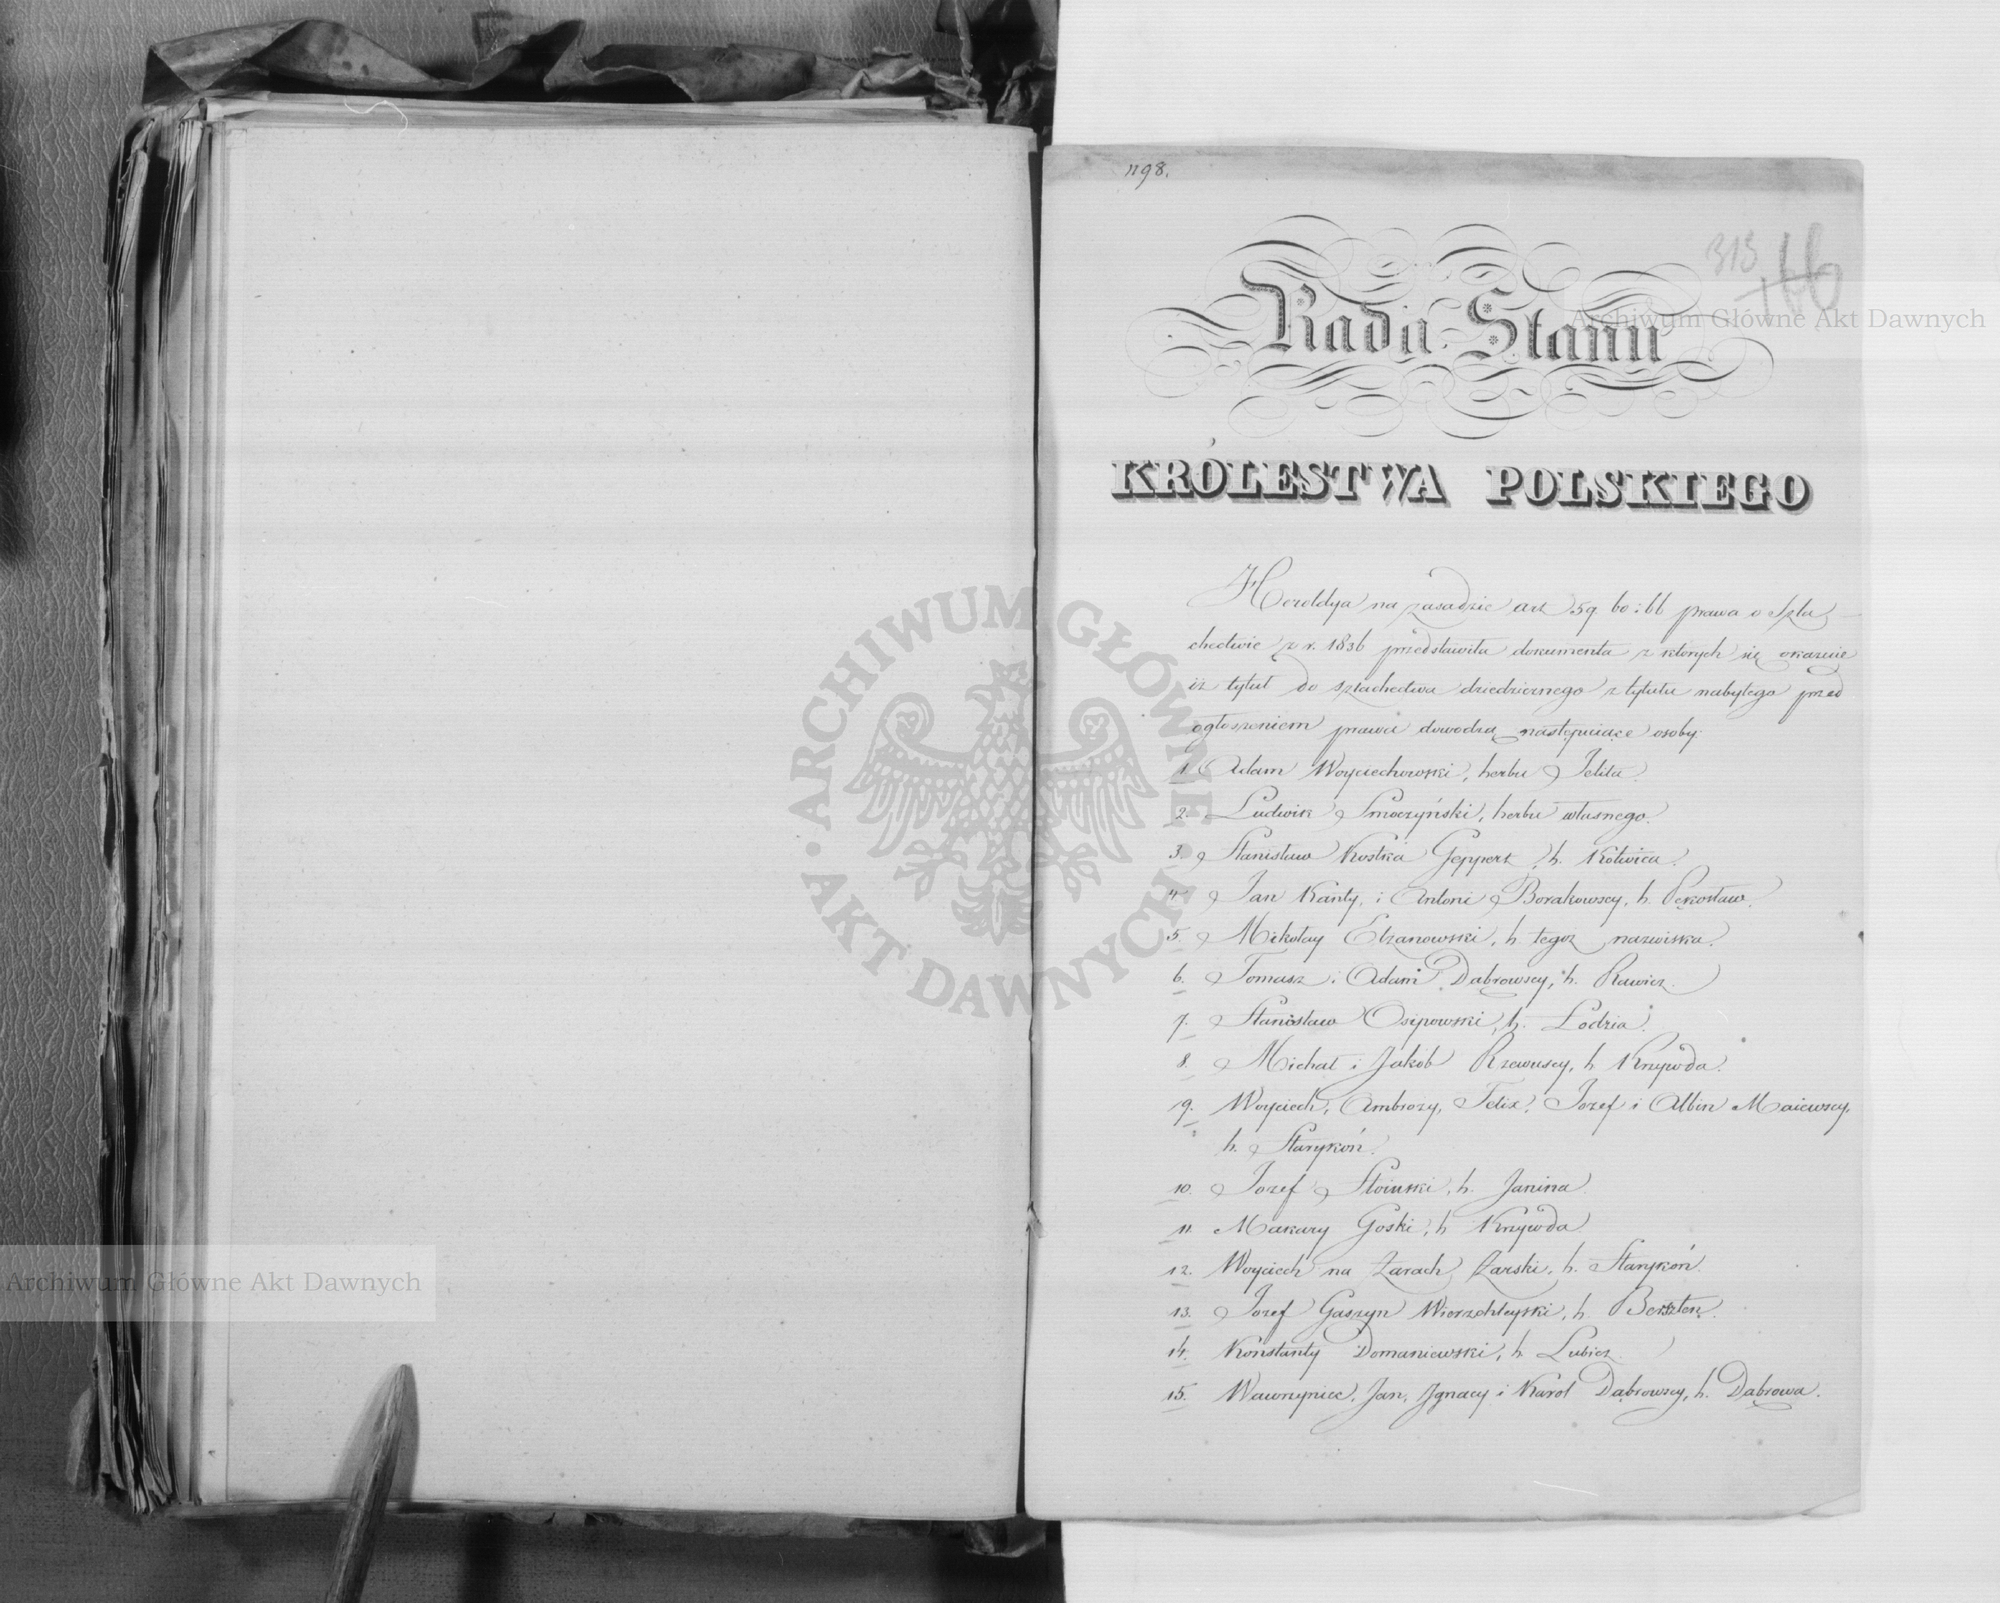 1198.
313
166
Rada Stanu
KRÓLESTWA POLSKIEGO
Heroldya na zasadzie art 59. 60 i 66 prawa o Szla
chectwie z r. 1836 przedstawiła dokumenta z których się okazuie
iż tytuł do szlachectwa dziedzicznego z tytułu nabytego przed
ogłoszeniem prawa dowodzą następuiące osoby.
1. Adam Woyciechowski, herbu Jelita.
2. Ludwik Smoczyński, herbu własnego.
3. Stanisław Kostka Geppert, h. Kotwica.
4. Jan Kanty, i Antoni Borakowscy, h. Pękosław.
5. Mikołay Elzanowski, h. tegoż nazwiska.
6. Tomasz i Adam Dąbrowscy, h. Rawicz.
7. Stanisław Osipowski, h. Łodzia.
8. Michał i Jakób Rzewuscy, h Krzywda.
9. Woyciech, Ambroży, Felix, Jozef i Albin Maiewscy,
h. Starykoń.
10. Jozef Stoiński, h. Janina
11. Makary Goski, h Krzywda
12. Woyciech na Żarach Żarski, h. Starykoń.
13. Jozef Gaszyn Wierzchleyski, h Berszten.
14. Konstanty Domaniewski, h. Lubicz.
15. Wawrzyniec, Jan, Ignacy i Karol Dąbrowscy, h. Dąbrowa.
Archiwum Główne Akt Dawnych
ARCHIWUM GŁÓWNE AKT DAWNYCH
Archiwum Główne Akt Dawnych